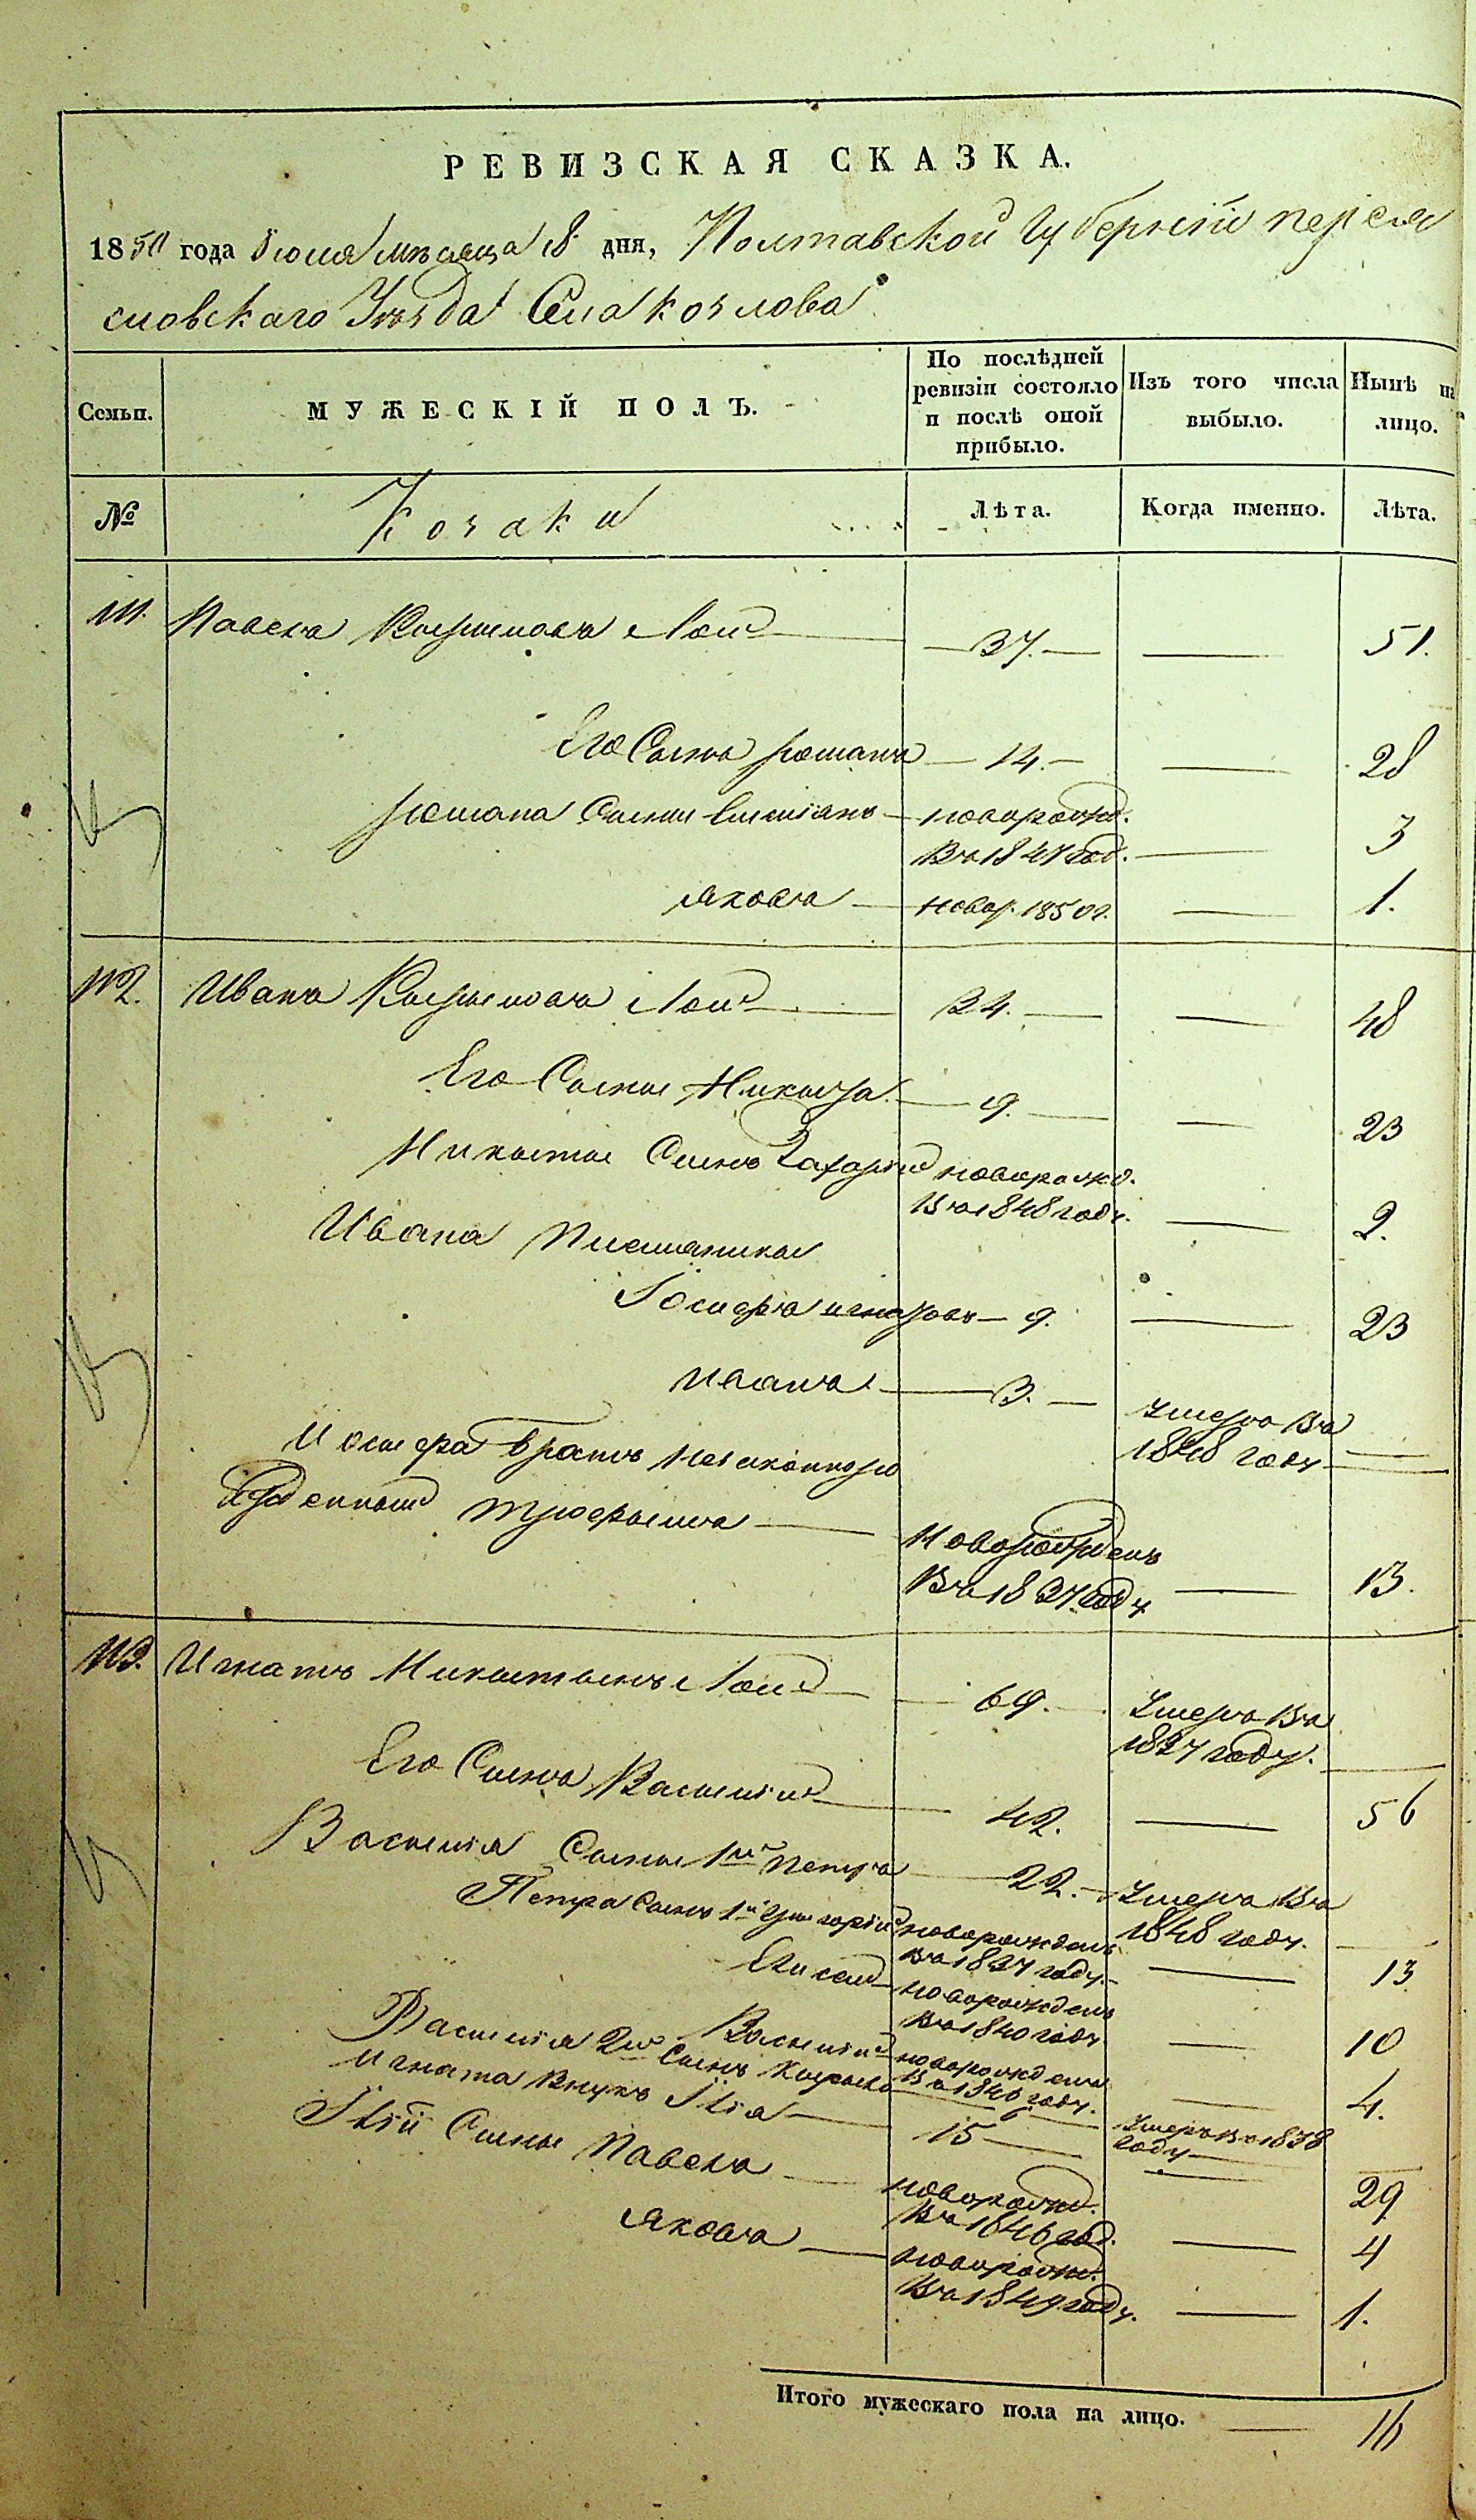 РЕВИЗСКАЯ СКАЗКА.
1850 года Июля мѣсяца 18 дня, Полтавской Губерніи переяс
лавского Уѣзда Села козлова
Семьи.
МУЖЕСКІЙ ПОЛЪ.
По послѣдней ревизіи состояло и послѣ оной прибыло.
Изъ того числа выбыло.
Нынѣ на лицо.
№
Козаки
Лѣта.
Когда именно.
Лѣта.
111. Павелъ 37. 51.
Его Сынъ романъ 14. 28
романа Сыны новорожд. 3
Въ 1847 год.
яковъ новор. 1850 г. 1.
112. Иванъ 34. 48
Его Сынъ Никита 9. 23
Никиты Сынъ Захарій новорожд.
Въ 1848 году. 2.
Ивана Племяники
Іосифъ 9. 23
Иванъ 3. Умеръ Въ
1848 году
Иосифа братъ незаконноро
жденный трофимъ Новорожденъ
Въ 1837 году 13.
113. Игнатъ Никитинъ 69. Умеръ Въ
1837 году.
Его Сынъ Василій 42. 56
Василія Сыны 1й петръ 22. Умеръ Въ
1848 году.
Петра Сынъ 1й Григорій новорожденъ
Въ 1837 году. 13
Елисей новорожденъ
Въ 1840 году 10
Василій новорожденъ
Въ 1846 году. 4.
Василія 2й Сынъ 6 Умеръ Въ 1838
году
Игната Внукъ Илія 15 29
Иліи Сыны Павелъ новорожд.
Въ 1846 год. 4
яковъ новорожд.
Въ 1849 году. 1.
Итого мужескаго пола на лицо. 16